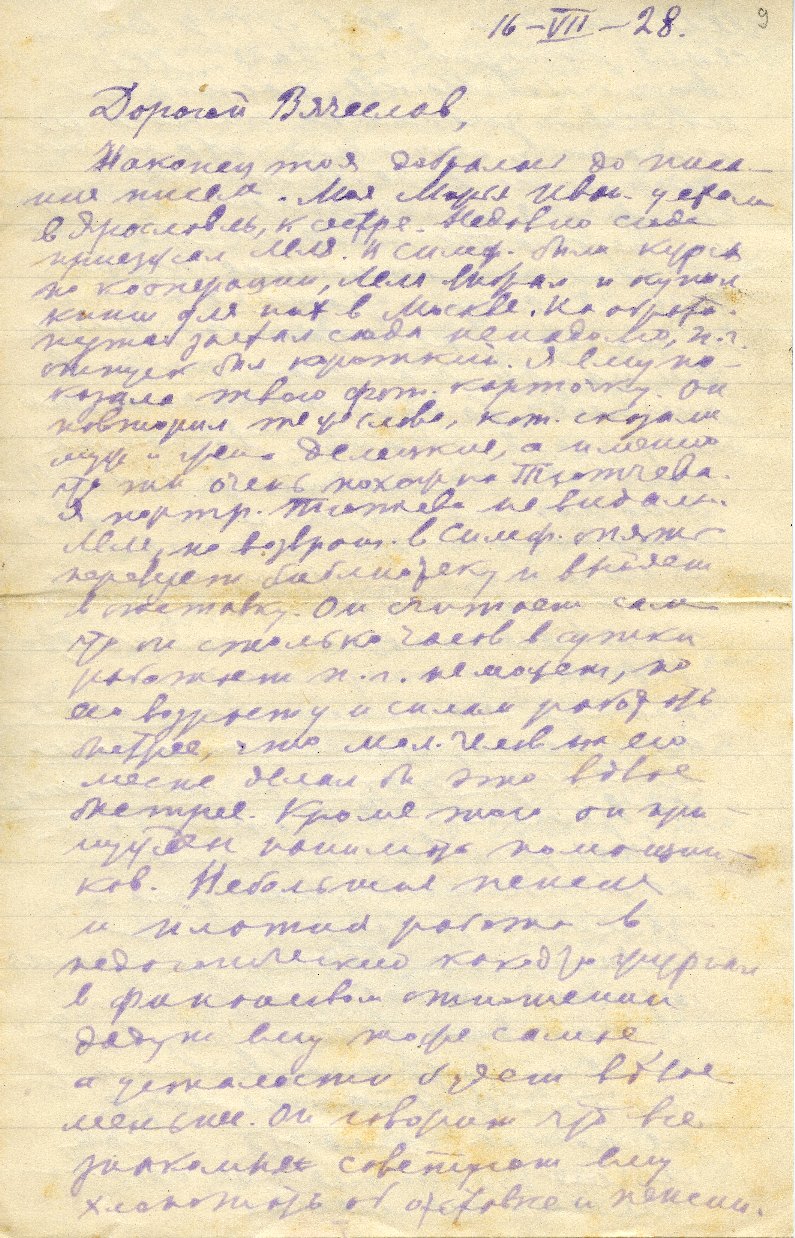 9
16-VII-28.
Дорогой Вячеслав,
Наконец то я добралась до писа-
ния писем. Моя Марья Иван. уехала
в Ярославль, к сестре. Недавно сюда
приезжал Леля. В Симф. были курсы
по кооперации, Леля выбрал и купил
книги для них в Москве. На обрат.
пути заехал сюда ненадолго, п.ч.
отпуск был короткий. Я ему по-
казала твою фот. карточку. Он
повторил те же слова, кот. сказали
муж и жена, а именно
что ты очень похож на Тютчева.
Я портр. Тютчева не видала.
Леля, по возвращ. в Симф. опять
библиотеку и выйдет
в отставку. Он считает сам
что он столько часов в сутки
работает п.ч. не может, по
его возрасту и силам работать
быстрее, что мол. челов. на его
месте делал бы это вдвое
быстрее. Кроме того он при-
нужден нанимать помощни-
ков. Небольшая пенсия
и платная работа в
педагогическом каком-то журнале
в финансовом отношении
дадут ему то же самое,
а усталости будет вдвое
меньше. Он говорит что все
знакомые советуют ему
хлопотать об отставке и пенсии.